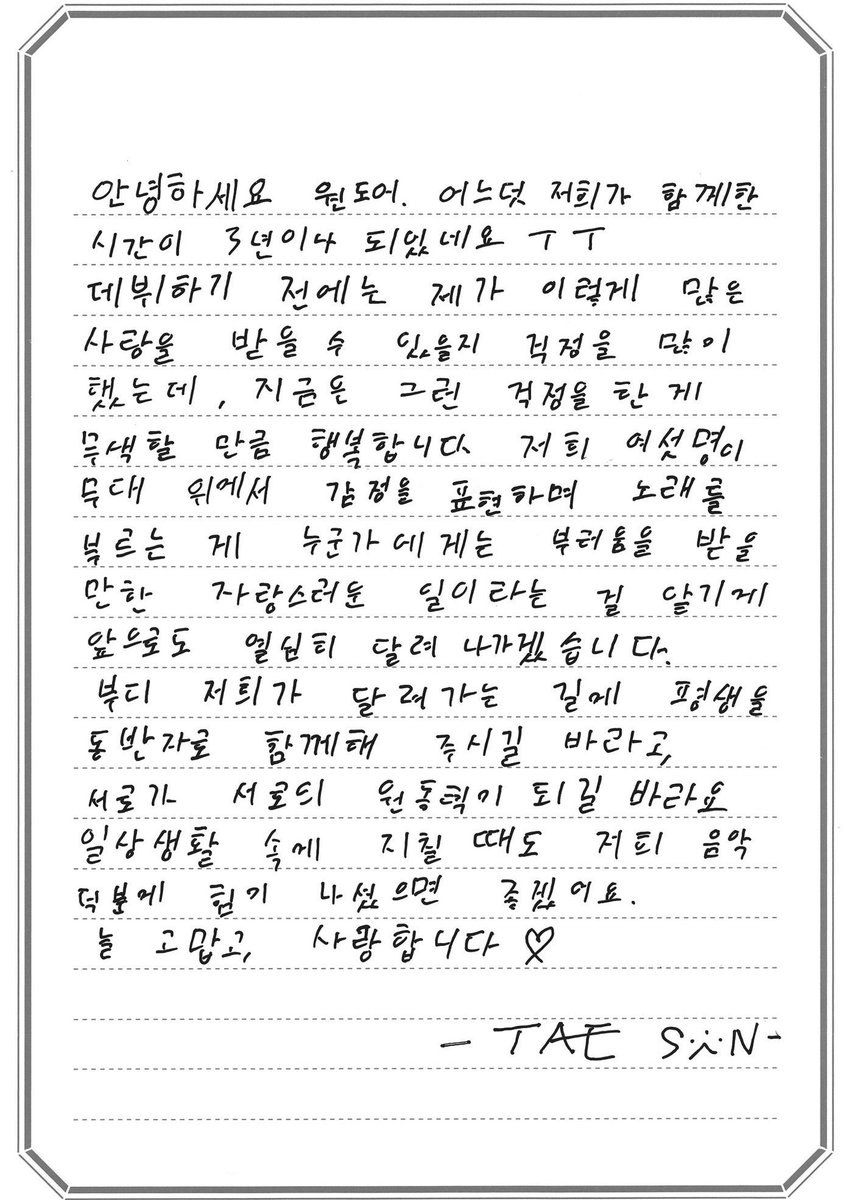 안녕하세요 원도어. 어느덧 저희가 함께한
시간이 3년이나 되있네요 ㅜㅜ
데뷔하기 전에는 제가 이렇게 많은
사랑을 받을 수 있을지 걱정을 많이
했는데, 지금은 그런 걱정을 한 게
무색할 만큼 행복합니다. 저희 여섯명이
무대 위에서 감정을 표현하며 노래를
부르는 게 누군가에게는 부러움을 받을
만한 자랑스러운 일이라는 걸 알기에
앞으로도 열심히 달려 나가겠습니다.
부디 저희가 달려가는 길에 평생을
동반자로 함께해 주시길 바라고,
서로가 서로의 원동력이 되길 바라요
일상생활 속에 지칠 때도 저희 음악
덕분에 힘이 나셨으면 좋겠어요.
늘 고맙고, 사랑합니다 ♡
- TAE SAN -